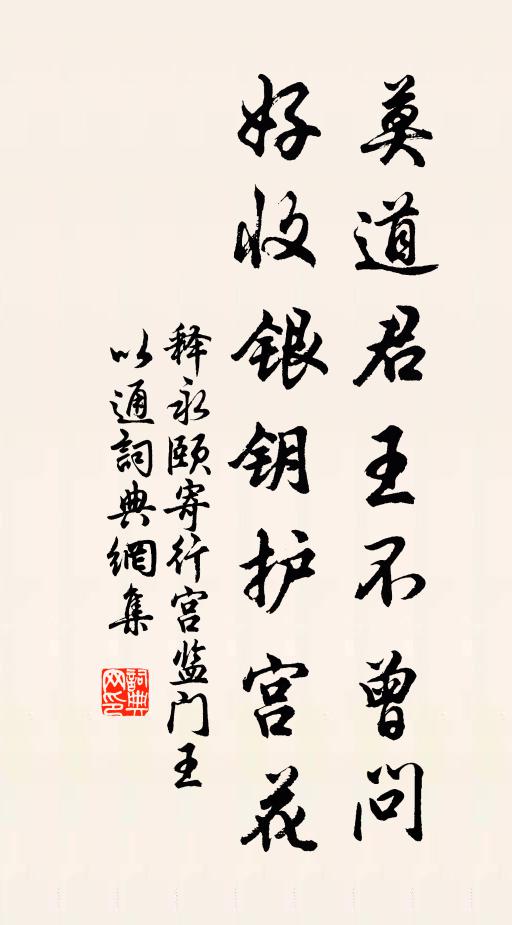 莫道君王不曾问
好收银钥护宫花
释永颐寄行宫监门王
以通詞典網集
詞典网印